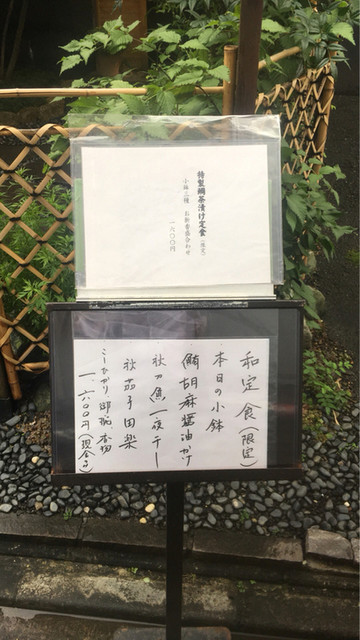 特製鯛茶漬け定食(限定)
小鉢三種 お新香盛合わせ
一六〇〇円
和定食(限定)
本日の小鉢
鮪胡麻醤油かけ
秋の魚一夜干し
秋茄子田楽
こしひかり 御椀 香物
一、六〇〇円(現金のみ)